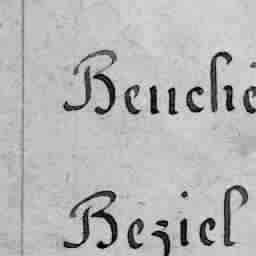 Beuche
Beziel